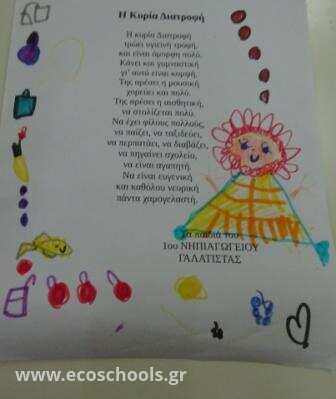 Η Κυρία Διατροφή
Η κυρία Διατροφή
τρώει υγιεινή τροφή,
και είναι όμορφη πολύ.
Κάνει και γυμναστική
γι' αυτό είναι κομψή.
Της αρέσει η μουσική
χορεύει και πολύ.
Της αρέσει η αισθητική,
να στολίζεται πολύ.
Να έχει φίλους πολλούς,
να παίζει, να ταξιδεύει,
να περπατάει, να διαβάζει,
να πηγαίνει σχολείο,
να είναι αγαπητή.
Να είναι ευγενική
και καθόλου νευρική
πάντα χαμογελαστή.
Τα παιδιά του
1ου ΝΗΠΙΑΓΩΓΕΙΟΥ
ΓΑΛΑΤΙΣΤΑΣ
www.ecoschools.gr